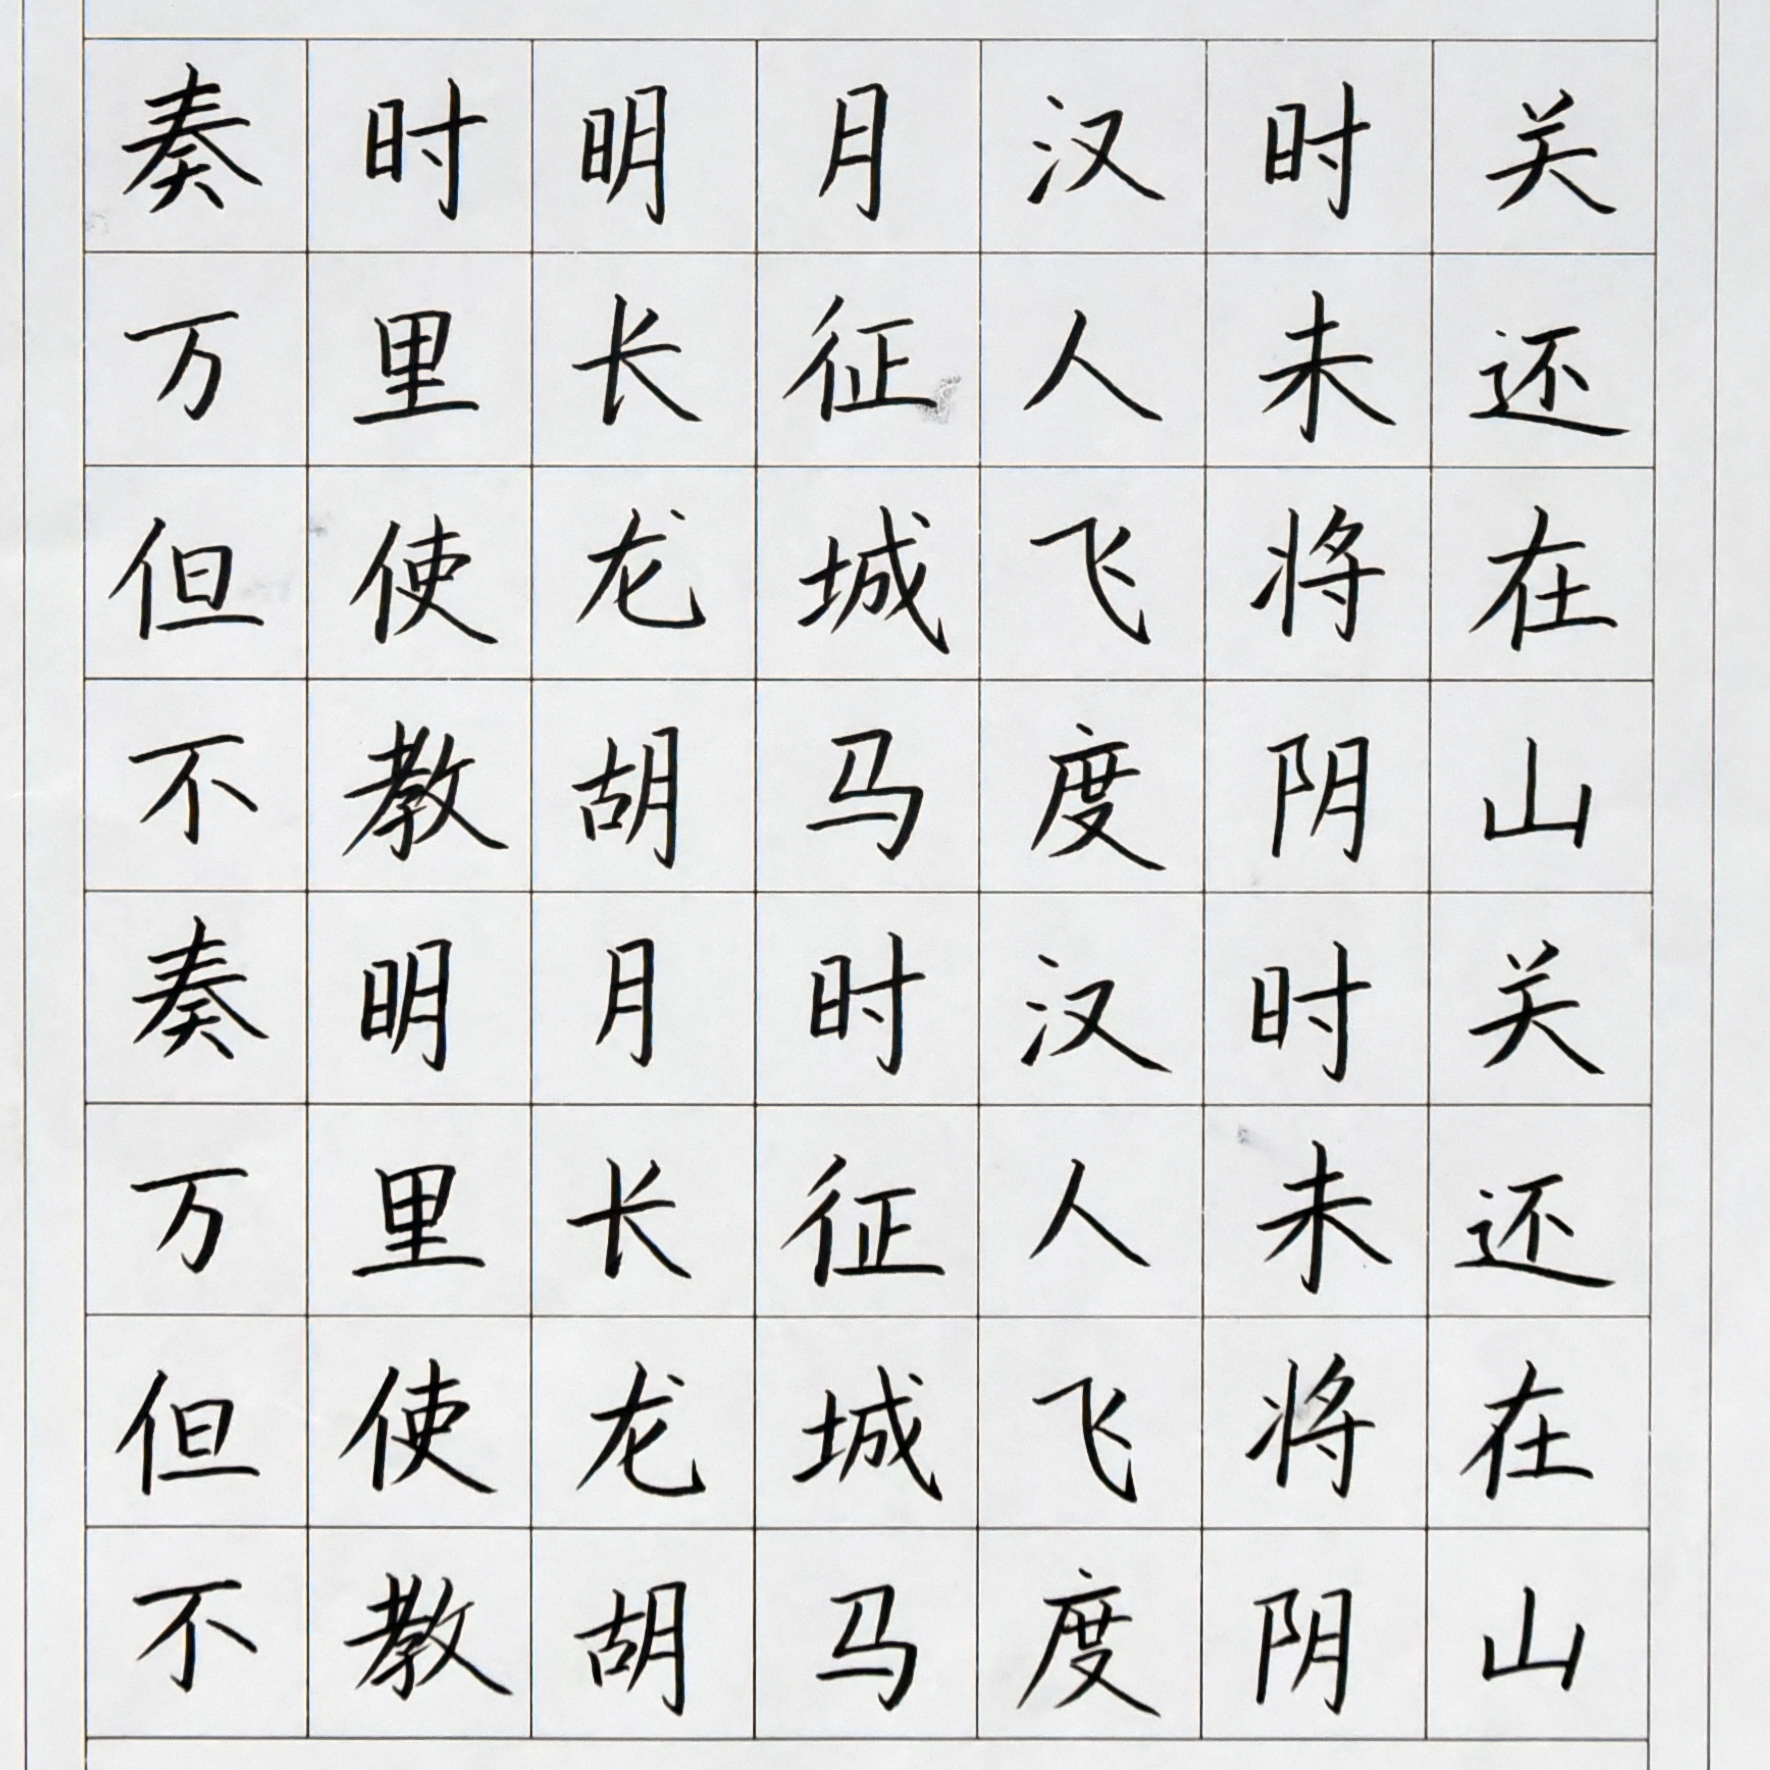 奏时明月汉时关
万里长征人未还
但使龙城飞将在
不教胡马度阴山
奏明月时汉时关
万里长征人未还
但使龙城飞将在
不教胡马度阴山